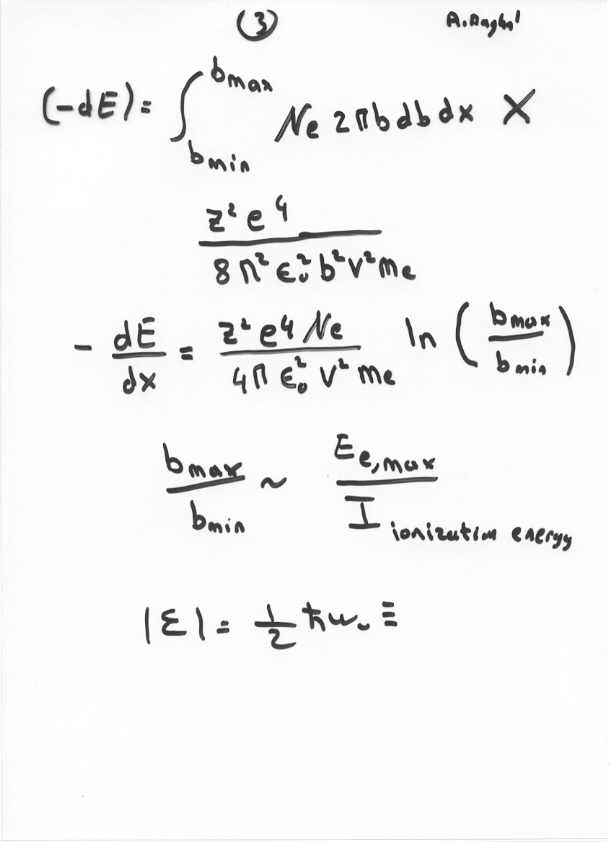 (3)
(-dE) = ∫_{bmin}^{bmax} Ne 2πb db dx ×
z² e⁴ / 8π² ε₀² b² v² me
- dE/dx = z² e⁴ Ne / 4π ε₀² v² me ln (bmax / bmin)
bmax / bmin ~ Ee,max / I ionization energy
|ε| = 1/2 ħω₀ ≡